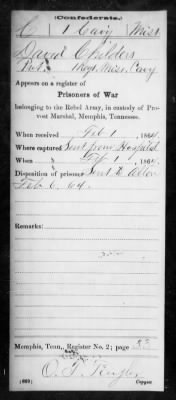 (Confederate.)
C 1 Cav'y Miss
David Childers
Pvt. Miss. Cavy
Appears on a register of
Prisoners of War
belonging to the Rebel Army, in custody of Provost Marshal, Memphis, Tennessee.
When received Feb 1, 1864.
Where captured Sent from Hospital
When Feb 1, 1864.
Disposition of prisoner Sent to Alton
Feb 6, 64.
Remarks:
Memphis, Tenn., Register No. 2; page 85
(669)
Copyist.